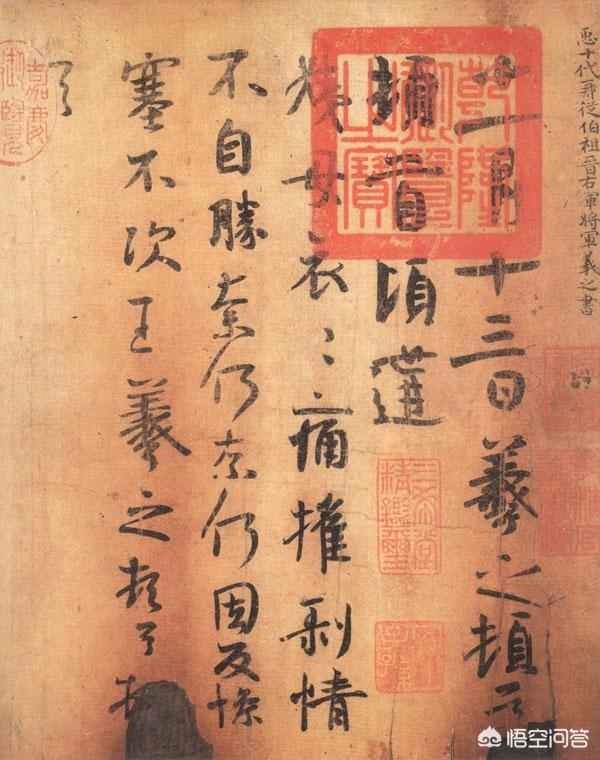 臣十代再從伯祖晉右軍將軍羲之書
十一月十三日羲之頓首
頓首頃遘
姨母哀〻痛摧剥情
不自勝奈何奈何因反慘
塞不次王羲之頓首頓
首
乾隆
御覽
之寶
嘉慶
御覽
三希堂
精鑑璽
悟空问答